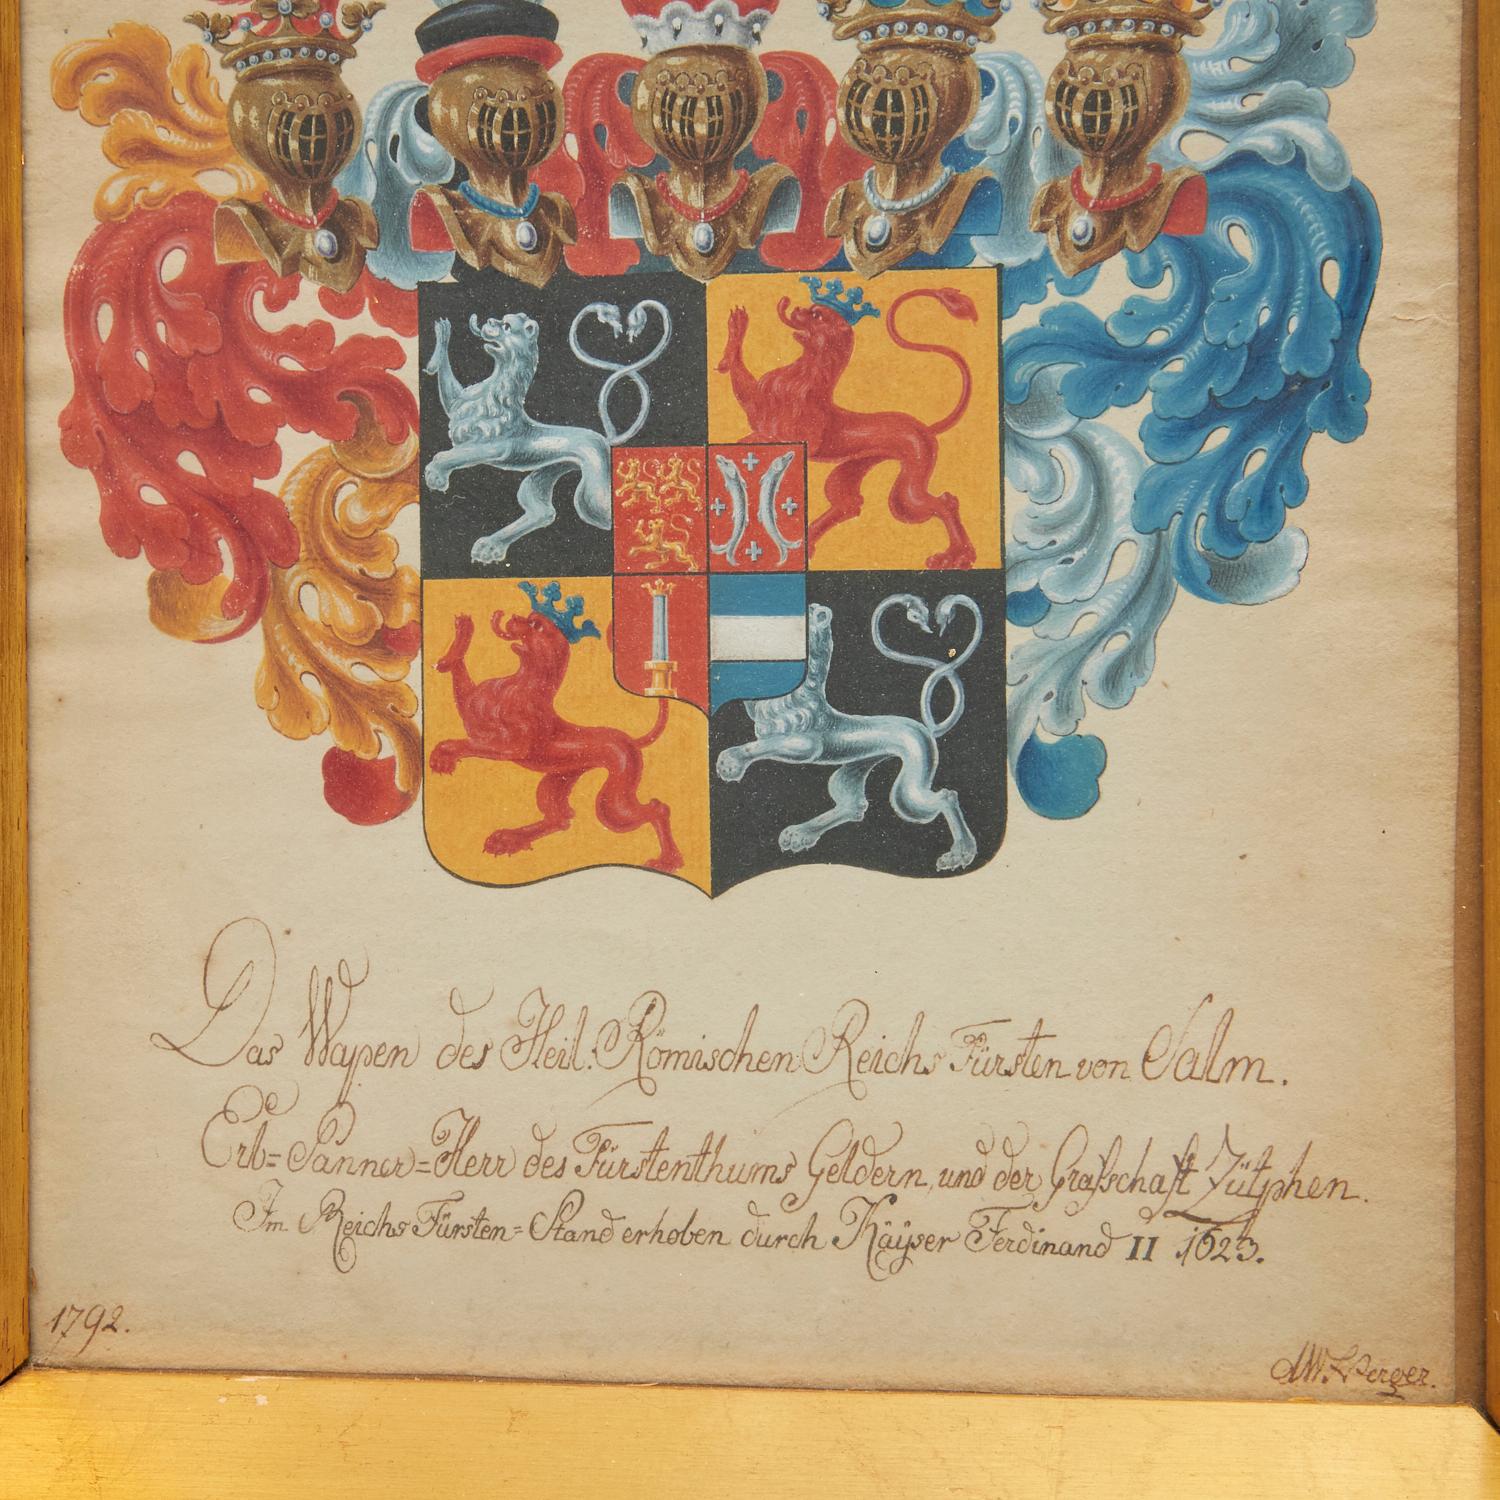 Das Wapen des Heil: Römischen Reichs Fürsten von Salm.
Erb=Panner=Herr des Fürstenthums Geldern, und der Grafschaft Zütphen.
Im Reichs Fürsten=Stand erhoben durch Kaÿser Ferdinand II 1623.
1792.